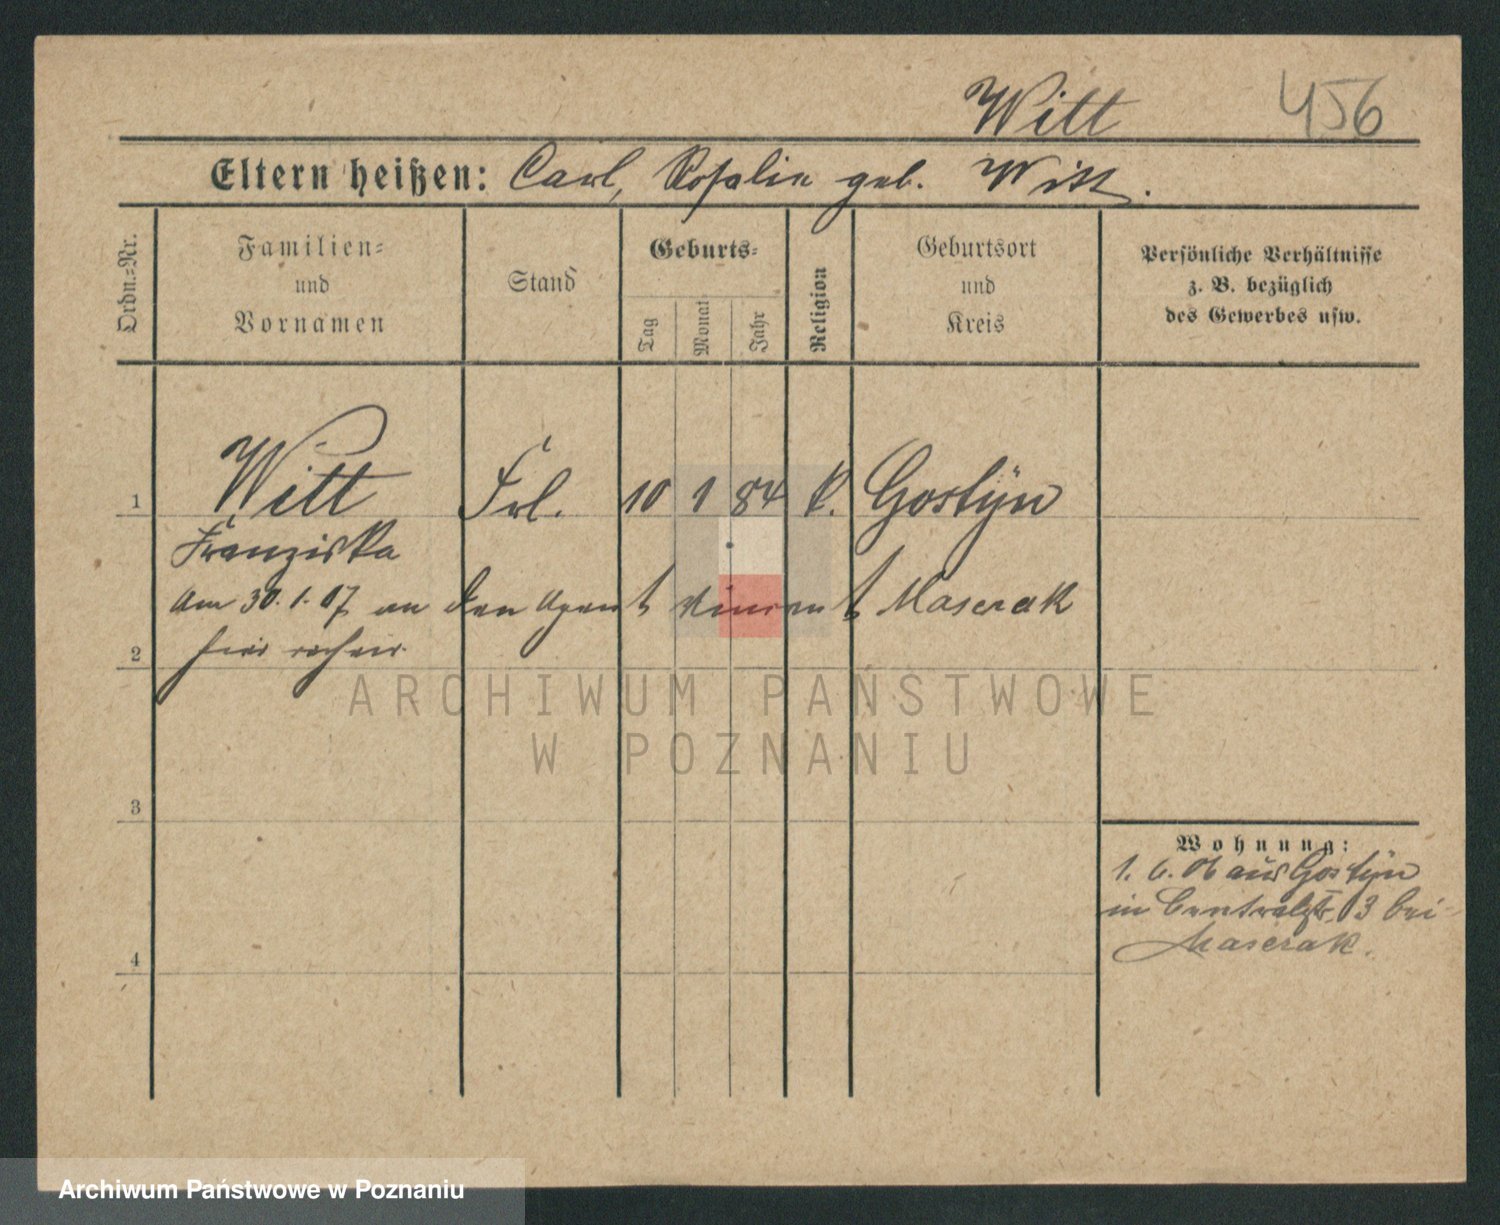 Witt 456
Eltern heißen: Carl, Rosalie geb. Witt.
Ordn.=Nr.
Familien=
und
Vornamen
Stand
Geburts=
Tag
Monat
Jahr
Religion
Geburtsort
und
Kreis
Persönliche Verhältnisse
z. B. bezüglich
des Gewerbes usw.
1 Witt Frl. 10 1 84 k. Gostyn
Franziska
am 30.1.07 an den Agent Vincent Maserak
2 hier
3
4
Wohnung:
1. 6. 06 aus Gostyn
in Centralstr. 3 bei
Maserak.
ARCHIWUM PAŃSTWOWE
W POZNANIU
Archiwum Państwowe w Poznaniu